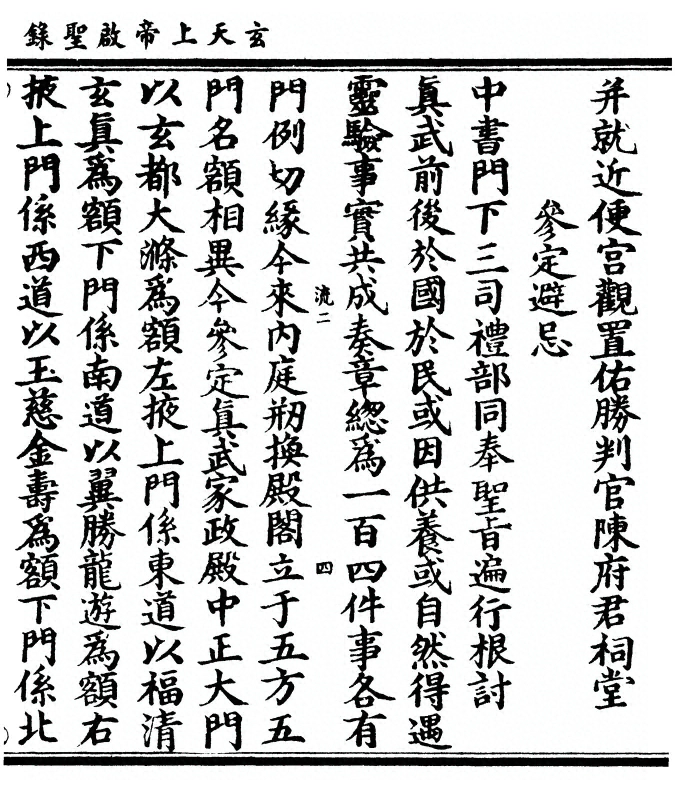 玄天上帝啟聖錄
并就近便宫觀置佑勝判官陳府君祠堂
參定避忌
中書門下三司禮部同奉聖旨遍行根討
眞武前後於國於民或因供養或自然得遇
靈驗事實共成奏章總爲一百四件事各有
流二
四
門例切緣今來内庭剏換殿閣立于五方五
門名額相異今參定眞武家政殿中正大門
以玄都大滌爲額左掖上門係東道以福清
玄眞爲額下門係南道以翼勝龍遊爲額右
掖上門係西道以玉慈金壽爲額下門係北